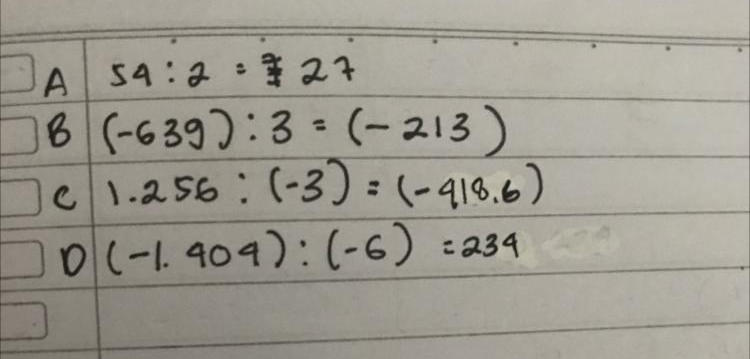 A 54 : 2 = 27
B (-639) : 3 = (-213)
C 1.256 : (-3) = (-418.6)
D (-1.404) : (-6) = 234